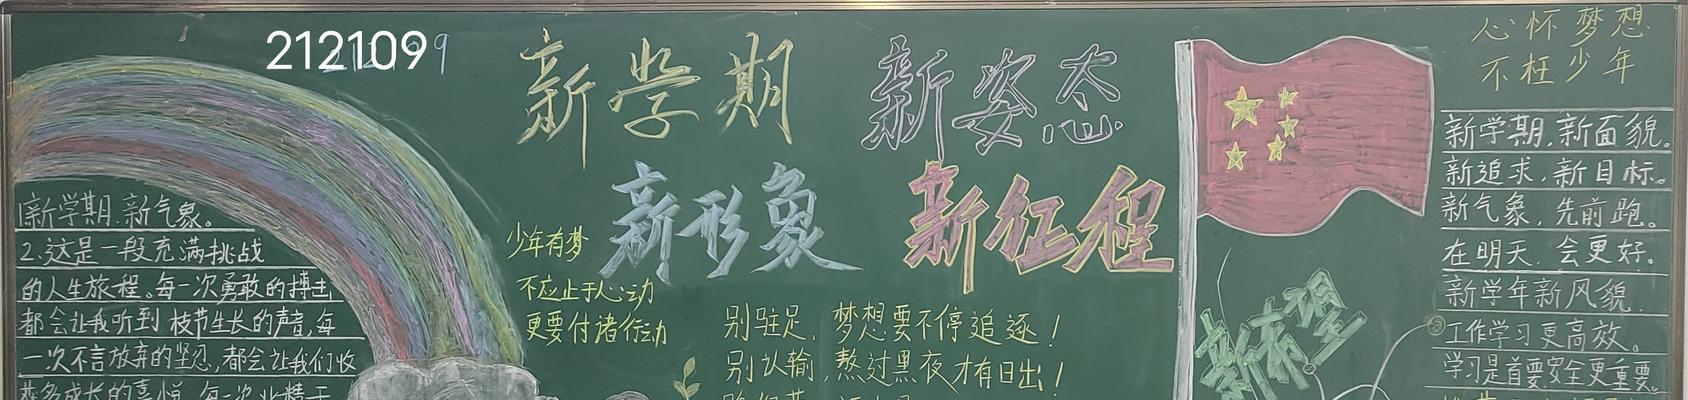 212109
新学期 新姿态
新形象 新征程
1新学期.新气象。
2.这是一段充满挑战
的人生旅程。每一次勇敢的搏击
都会让我听到枝节生长的声音,每
一次不言放弃的坚忍,都会让我们收
少年有梦
不应止于心动
更要付诸行动
别驻足,梦想要不停追逐!
别认输,熬过黑夜才有日出!
心怀梦想
不枉少年
新学期,新面貌。
新追求,新目标。
新气象,先前跑。
在明天,会更好。
新学年新风貌,
工作学习更高效。
学习是首要安全更重要。